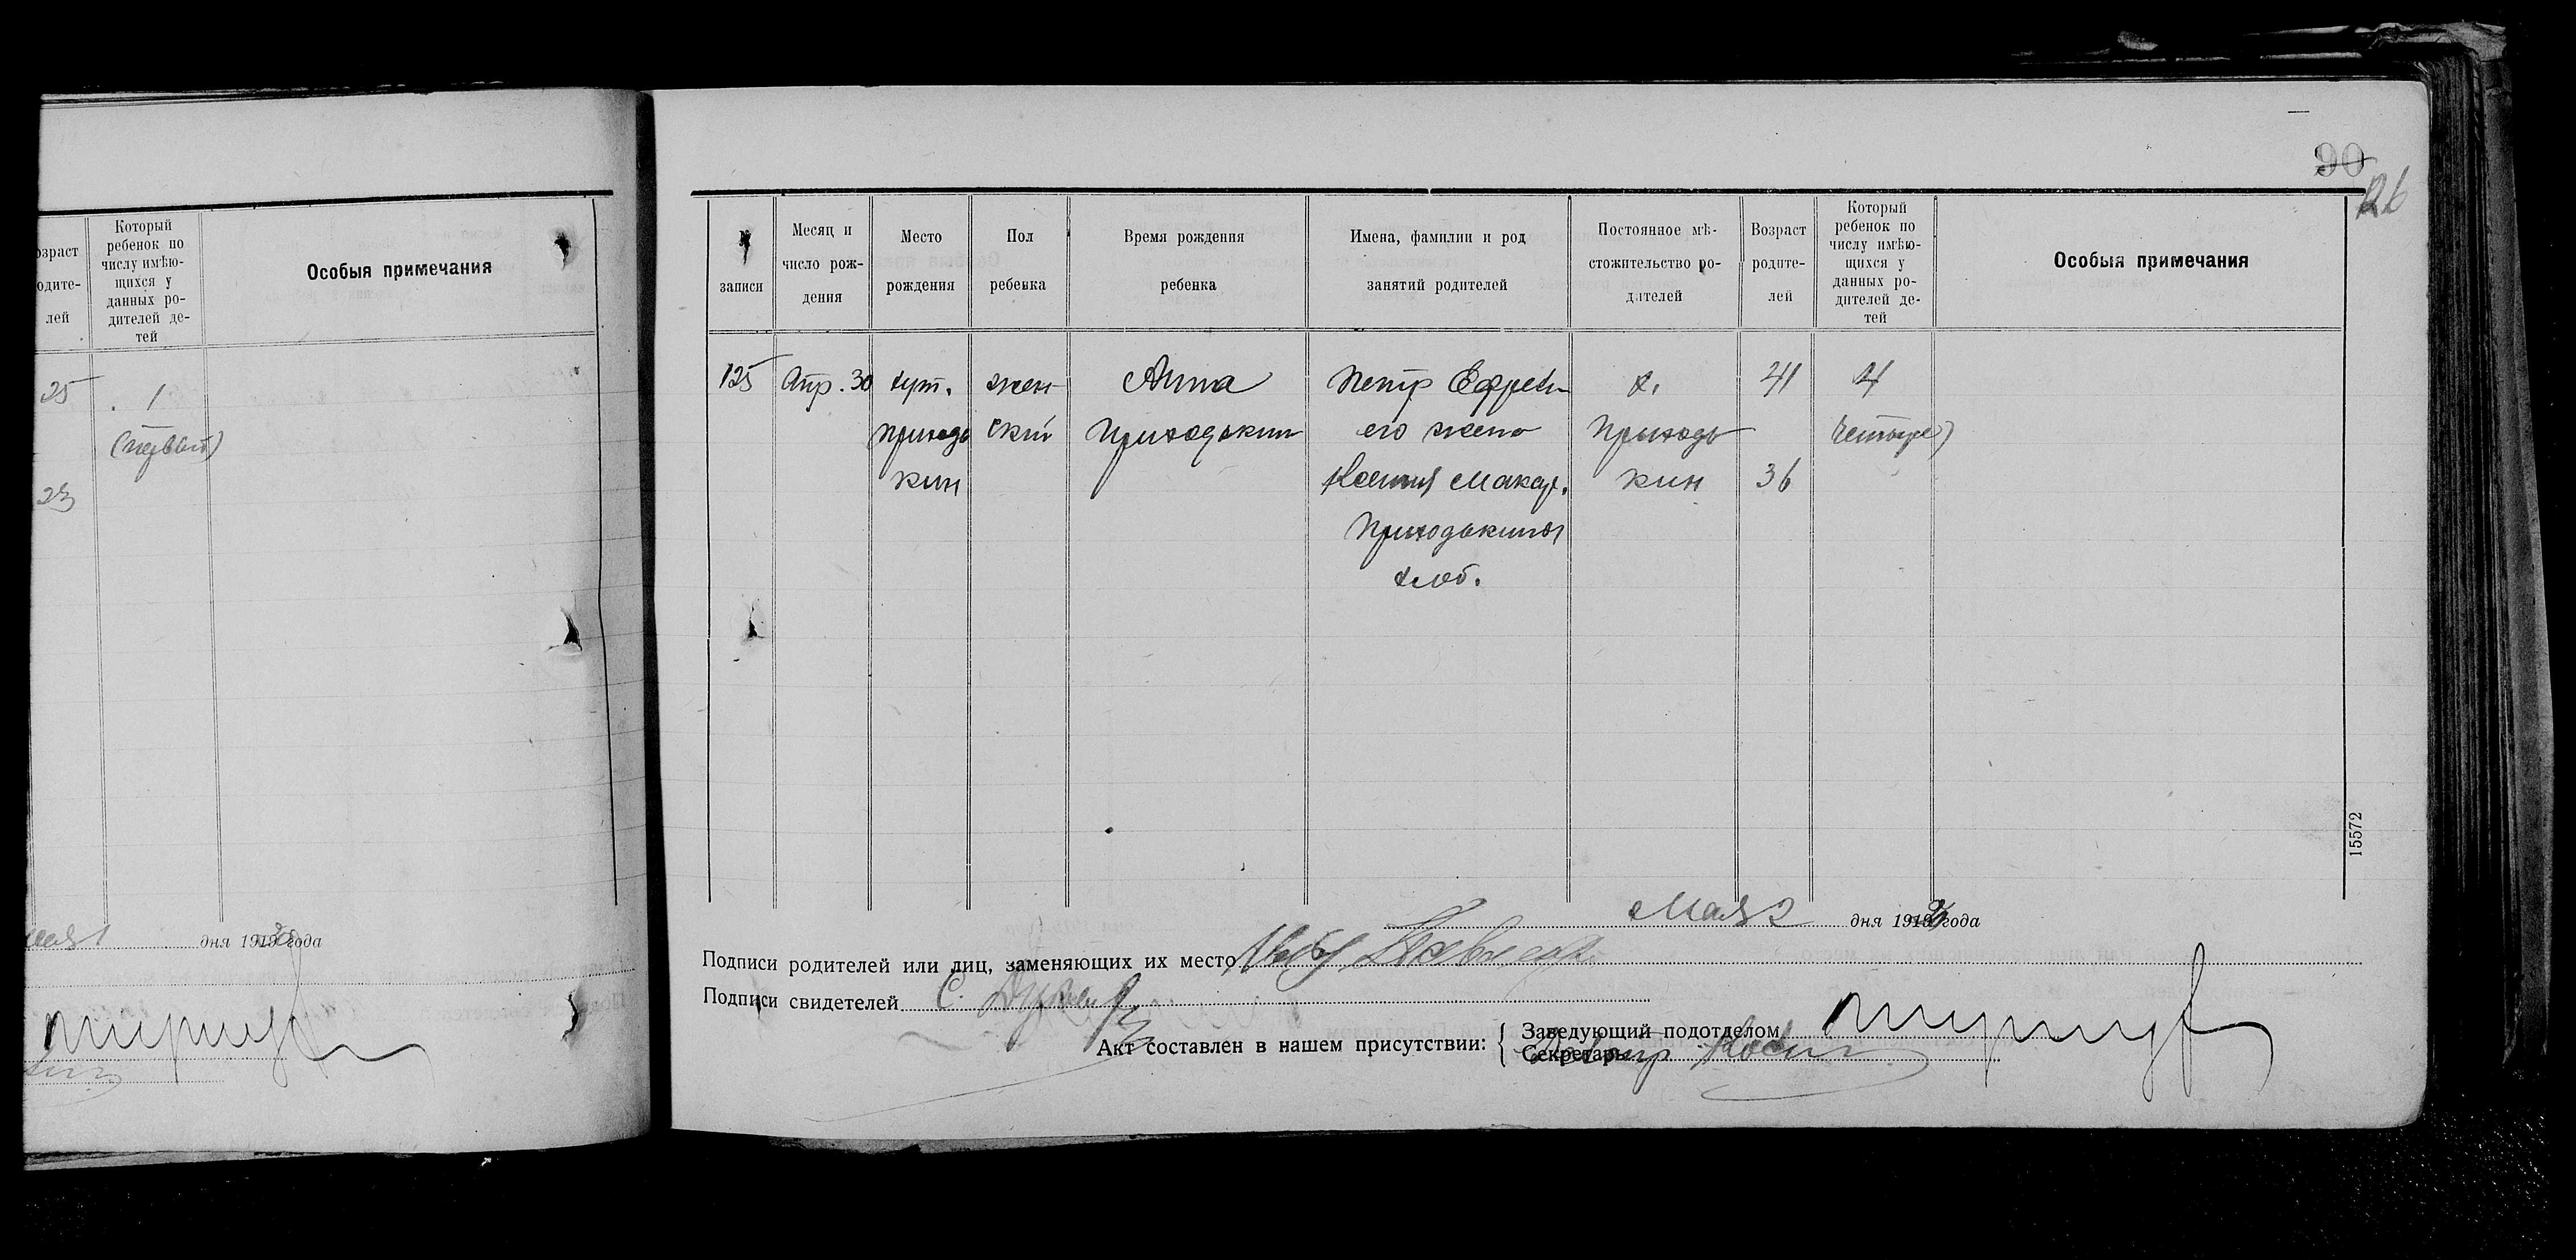 озраст
одите-
лей
Который
ребенок по
числу имѣю-
щихся у
данных ро-
дителей де-
тей
Особыя примечания
25
1
(первый)
23
дня 19
года
90
126
№
записи
Месяц и
число рож-
дения
Место
рождения
Пол
ребенка
Время рождения
ребенка
Имена, фамилии и род
занятий родителей
Постоянное мѣ-
стожительство ро-
дителей
Возраст
родите-
лей
Который
ребенок по
числу имѣю-
щихся у
данных ро-
дителей де-
тей
Особыя примечания
125
Апр. 30
хут.
Приходь
кин
жен
ский
Анна
Приходькин
Петр Ефрем
его жена
Ксения Макар.
Приходькины
хлеб.
х.
Приходь
кин
41
36
4
Четыре)
15572
Мая 2 дня 19
года
Подписи родителей или лиц, заменяющих их место
Подписи свидетелей С.
Акт составлен в нашем присутствии:
Заведующий подотделом
Секретарь